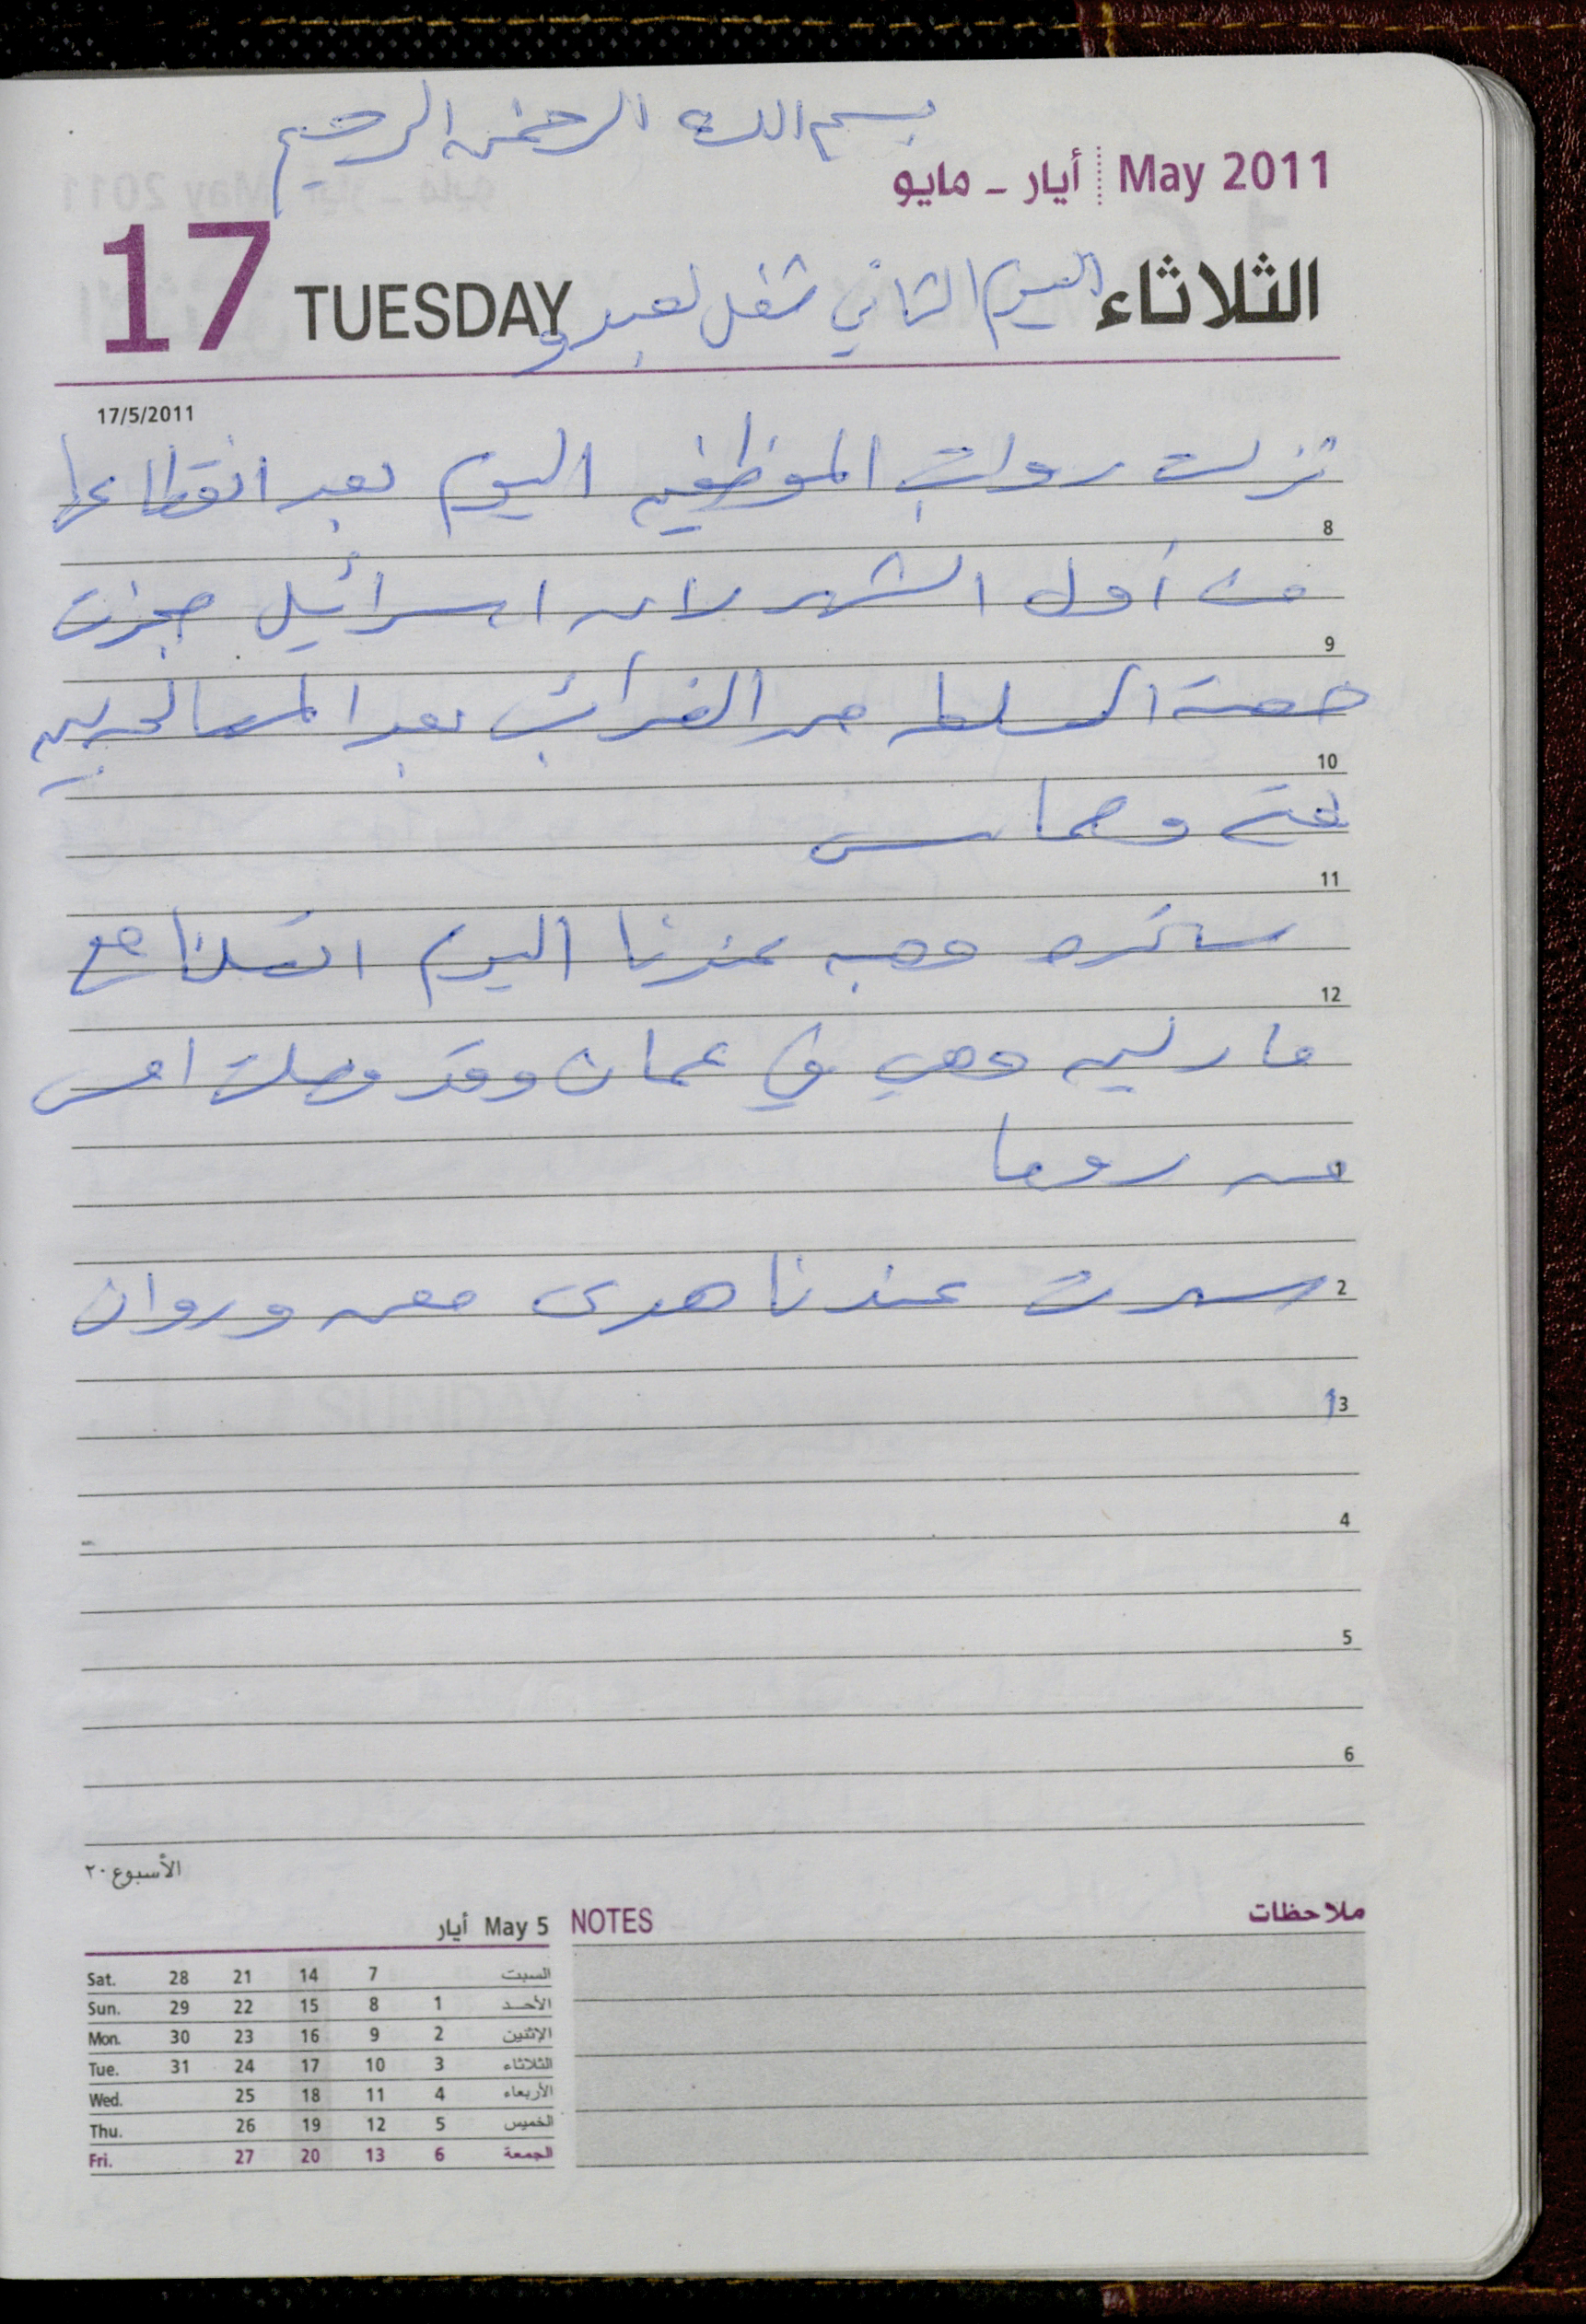 بسم الله الرحمن الرحيم
May 2011 أيار - مايو
17 TUESDAY اليوم الثاني شغل لعبدو الثلاثاء
17/5/2011
نزلت رواتب الموظفين اليوم بعد انقطاعها
8
من أول الشهر لان اسرائيل حجزت
9
حصة السلطه من الضرائب بعد المصالحه بين
10
فتح وحماس
11
سائده وهبه عندنا اليوم اتصلنا مع
12
مارلين وهي في عمان وقد وصلت امس
من روما
1
سهرت عندنا هدى معن وروان
2
3
4
5
6
الأسبوع ٢٠
أيار May 5
Sat. 28 21 14 7 السبت
Sun. 29 22 15 8 1 الأحد
Mon. 30 23 16 9 2 الإثنين
Tue. 31 24 17 10 3 الثلاثاء
Wed. 25 18 11 4 الأربعاء
Thu. 26 19 12 5 الخميس
Fri. 27 20 13 6 الجمعة
NOTES ملاحظات